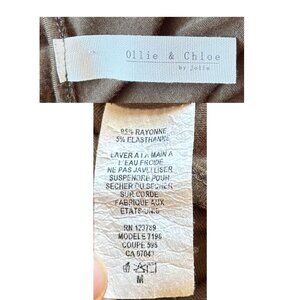 Ollie & Chloe
by Jolie
95% RAYONNE
5% ELASTHANNE
LAVER A LA MAIN A
L'EAU FROIDE
NE PAS JAVELLISER
SUSPENDRE POUR
SECHER OU SECHER
SUR CORDE
FABRIQUE AUX
ETATS-UNIS
RN 123789
MODELE 7196
COUPE 595
CA 57043
M